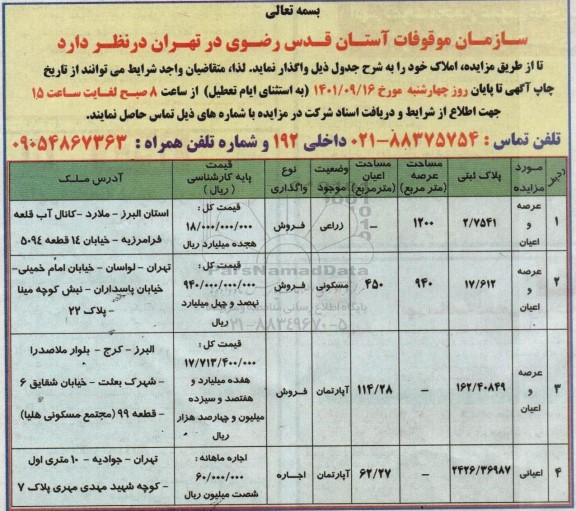 بسمه تعالی
سازمان موقوفات آستان قدس رضوی در تهران درنظر دارد
تا از طریق مزایده، املاک خود را به شرح جدول ذیل واگذار نماید. لذا، متقاضیان واجد شرایط می توانند از تاریخ
چاپ آگهی تا پایان روز چهارشنبه مورخ ۱۴۰۱/۰۹/۱۶ (به استثنای ایام تعطیل) از ساعت ۸ صبح لغایت ساعت ۱۵
جهت اطلاع از شرایط و دریافت اسناد شرکت در مزایده با شماره های ذیل تماس حاصل نمایند.
تلفن تماس : ۸۸۳۷۵۷۵۴-۰۲۱ داخلی ۱۹۲ و شماره تلفن همراه : ۰۹۰۵۴۸۶۷۳۶۳
ردیف | مورد مزایده | پلاک ثبتی | مساحت عرصه (متر مربع) | مساحت اعیان (مترمربع) | وضعیت موجود | نوع واگذاری | قیمت پایه کارشناسی (ریال) | آدرس ملک
۱ | عرصه و اعیان | ۲/۷۵۴۱ | ۱۲۰۰ | – | زراعی | فروش | قیمت کل : ۱۸/۰۰۰/۰۰۰/۰۰۰ هجده میلیارد ریال | استان البرز - ملارد -کانال آب قلعه فرامرزیه - خیابان ۱۴ قطعه ۵۰۹۴
۲ | عرصه و اعیان | ۱۷/۶۱۲ | ۹۴۰ | ۴۵۰ | مسکونی | فروش | قیمت کل : ۹۴۰/۰۰۰/۰۰۰/۰۰۰ نهصد و چهل میلیارد ریال | تهران - لواسان - خیابان امام خمینی- خیابان پاسداران - نبش کوچه مینا - پلاک ۲۲
۳ | عرصه و اعیان | ۱۶۲/۴۰۸۴۹ | – | ۱۱۴/۲۸ | آپارتمان | فروش | قیمت کل : ۱۷/۷۱۳/۴۰۰/۰۰۰ هفده میلیارد و هفتصد و سیزده میلیون و چهارصد هزار ریال | البرز - کرج - بلوار ملاصدرا - شهرک بعثت - خیابان شقایق ۶ - قطعه ۹۹ (مجتمع مسکونی هلیا)
۴ | اعیانی | ۲۴۲۶/۳۶۹۸۷ | – | ۶۲/۲۷ | آپارتمان | اجاره | اجاره ماهانه : ۶۰/۰۰۰/۰۰۰ شصت میلیون ریال | تهران - جوادیه - ۱۰ متری اول - کوچه شهید مهدی مهری پلاک ۷
ParsNamadData
پایگاه اطلاع رسانی مناقصه و مزایده
۰۲۱-۸۸۳۴۹۶۷۰-۵